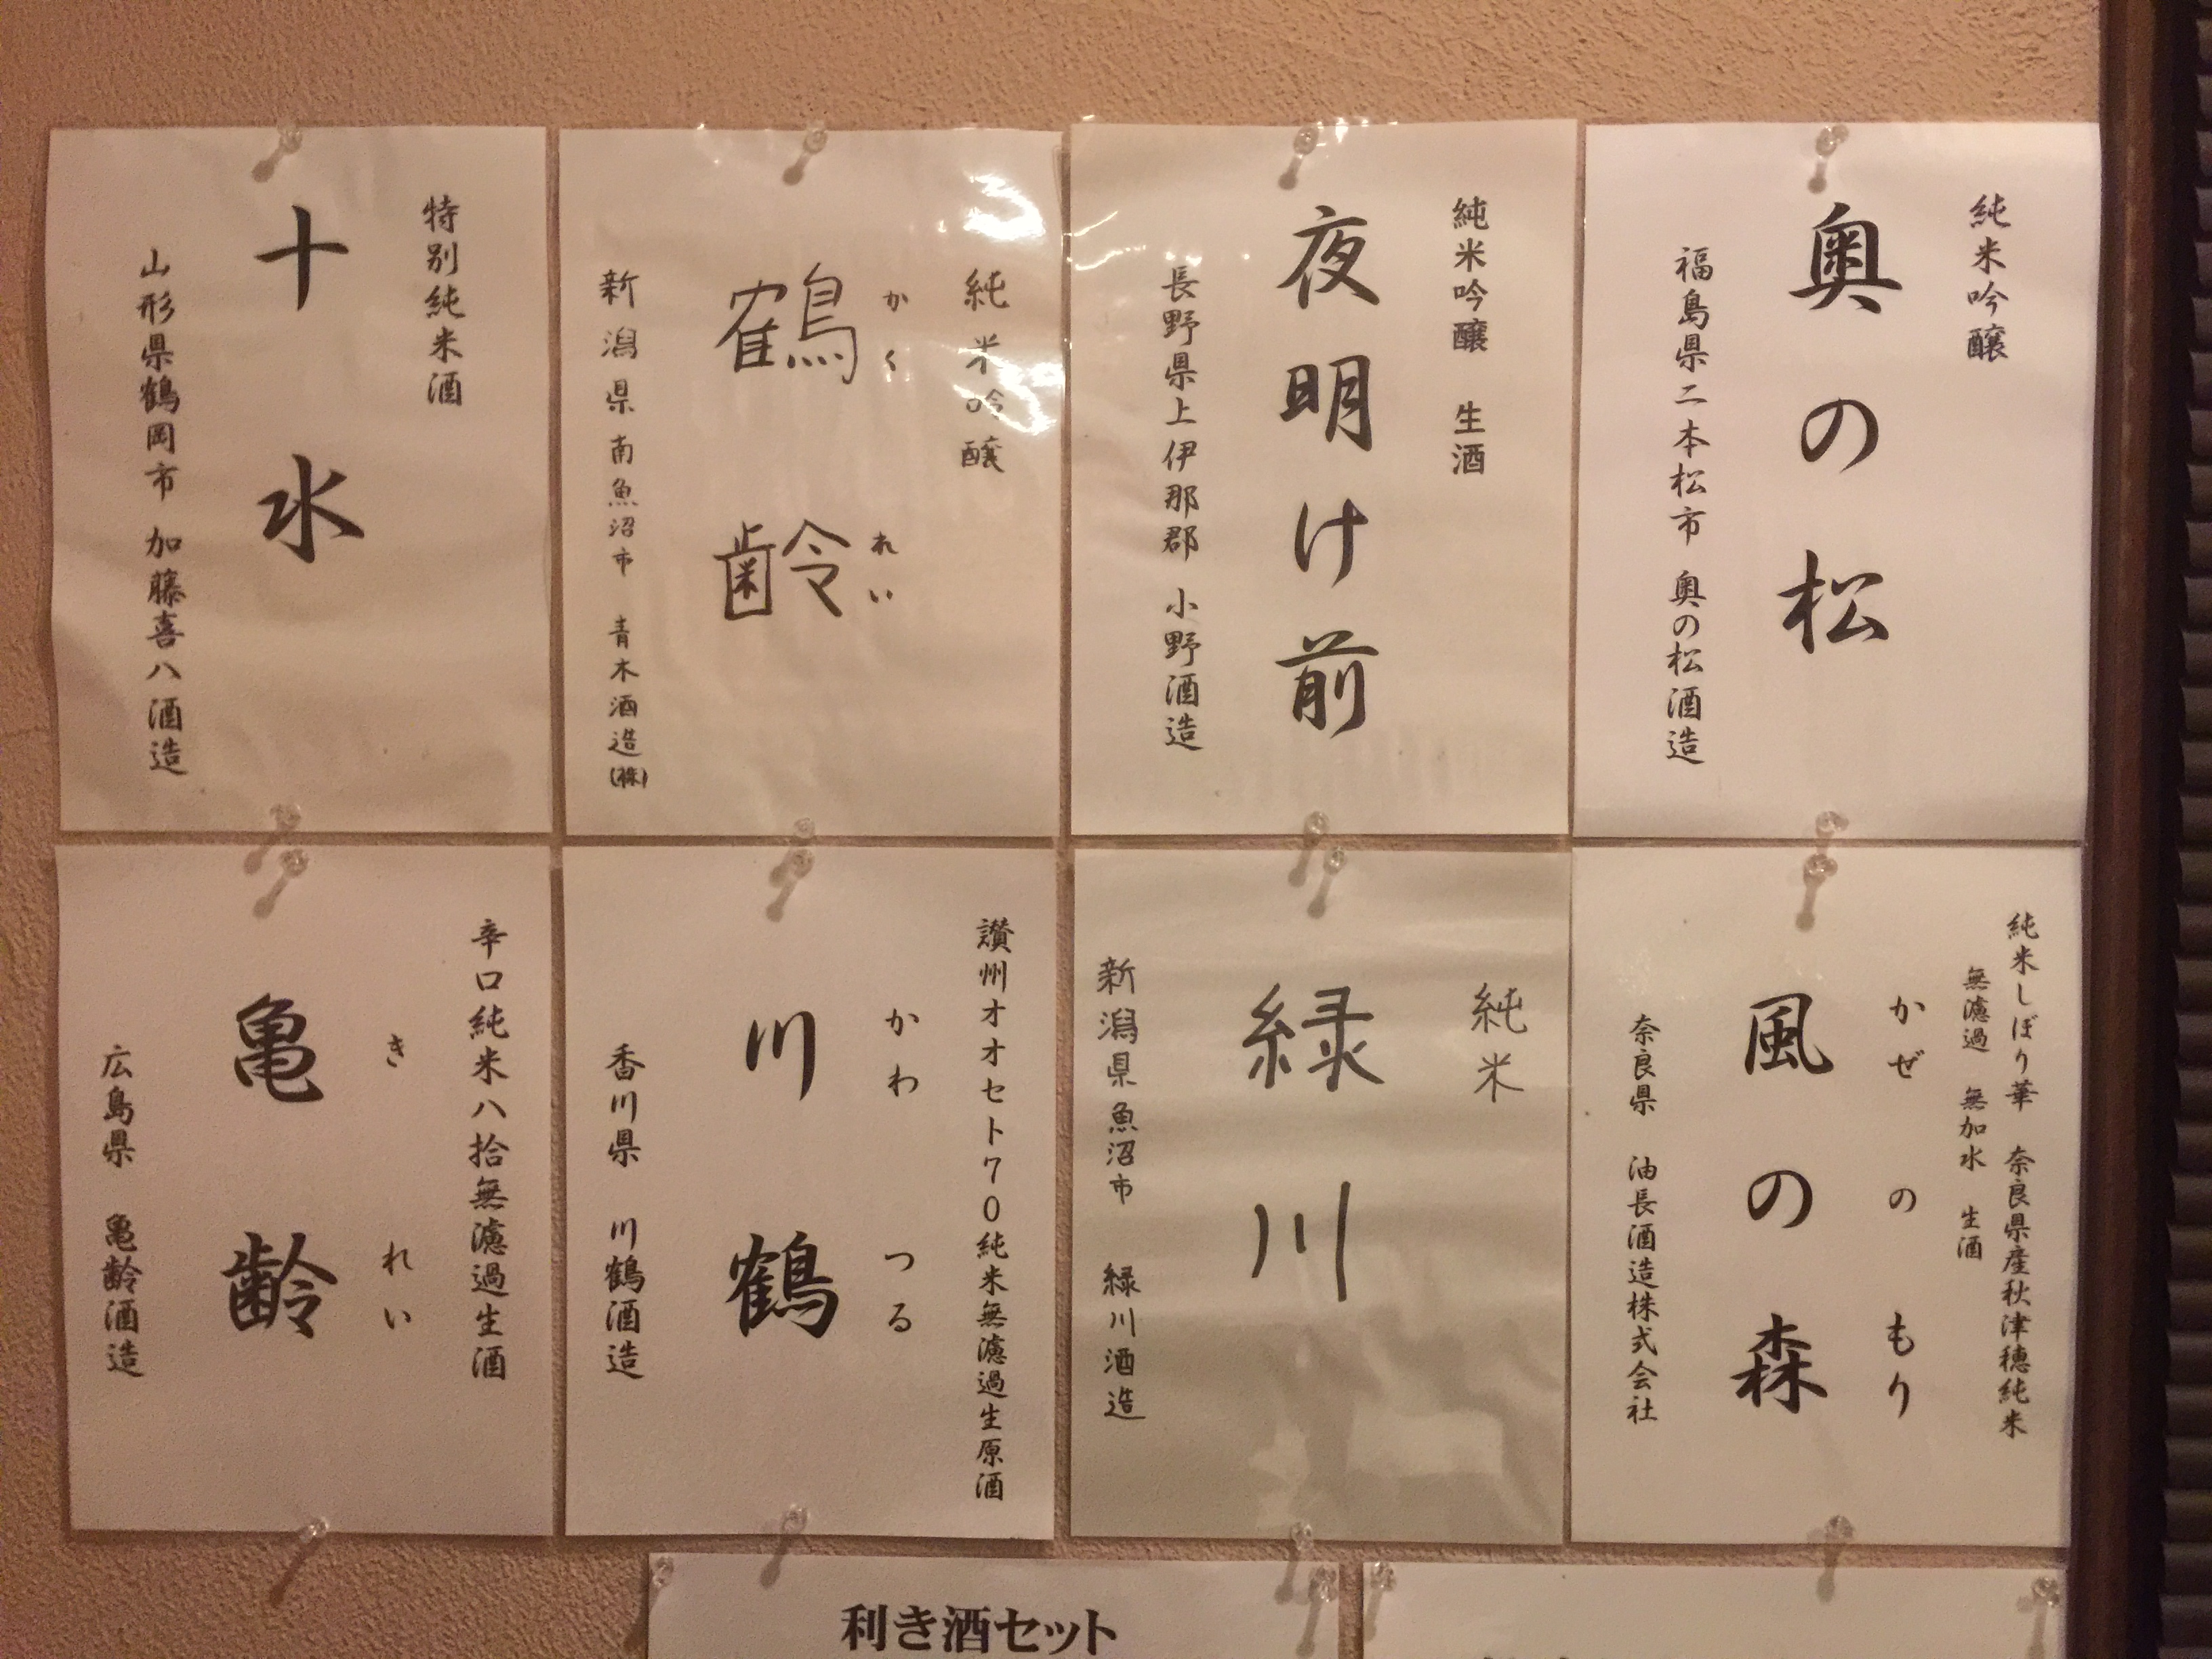 純米吟醸
奥の松
福島県二本松市 奥の松酒造
純米吟醸 生酒
夜明け前
長野県上伊那郡 小野酒造
純米吟醸
かくれい
鶴齢
新潟県南魚沼市 青木酒造(株)
特別純米酒
十水
山形県鶴岡市 加藤喜八酒造
純米しぼり華 奈良県産秋津穂純米
無濾過 無加水 生酒
かぜのもり
風の森
奈良県 油長酒造株式会社
純米
緑川
新潟県魚沼市 緑川酒造
讃州オオセト70純米無濾過生原酒
かわつる
川鶴
香川県 川鶴酒造
辛口純米八拾無濾過生酒
きれい
亀齢
広島県 亀齢酒造
利き酒セット